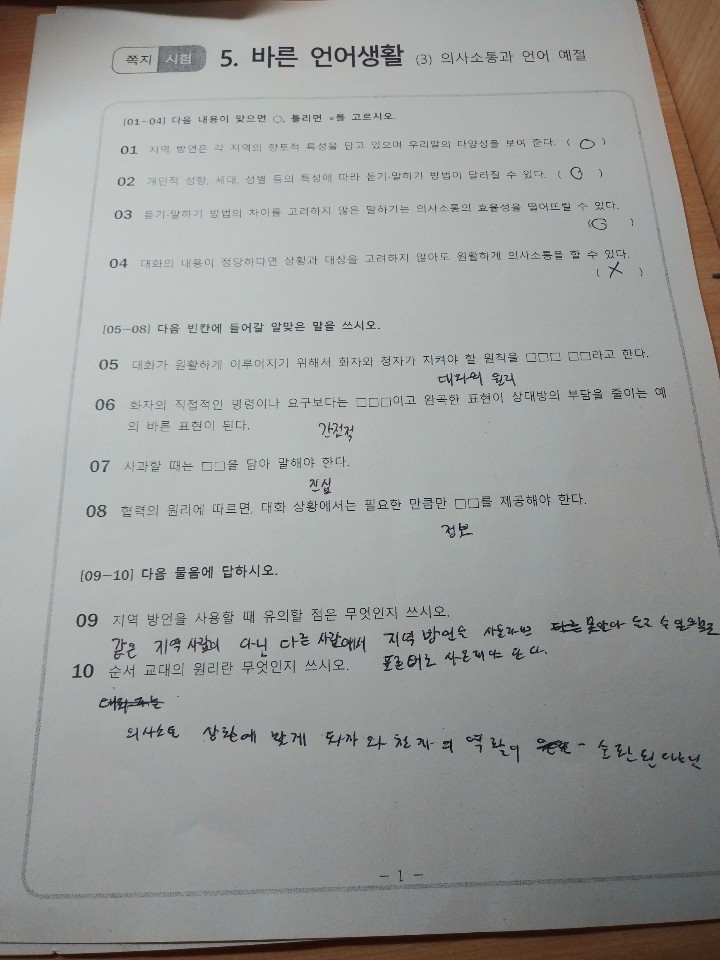 쪽지 시험 5. 바른 언어생활 (3) 의사소통과 언어 예절
[01-04] 다음 내용이 맞으면 ○, 틀리면 ×를 고르시오.
01 지역 방언은 각 지역의 향토적 특성을 담고 있으며 우리말의 다양성을 보여 준다. ( ○ )
02 개인적 성향, 세대, 성별 등의 특성에 따라 듣기·말하기 방법이 달라질 수 있다. ( ○ )
03 듣기·말하기 방법의 차이를 고려하지 않은 말하기는 의사소통의 효율성을 떨어뜨릴 수 있다.
( ○ )
04 대화의 내용이 정당하다면 상황과 대상을 고려하지 않아도 원활하게 의사소통을 할 수 있다.
( X )
[05-08] 다음 빈칸에 들어갈 알맞은 말을 쓰시오.
05 대화가 원활하게 이루어지기 위해서 화자와 청자가 지켜야 할 원칙을 □□□ □□라고 한다.
대화의 원리
06 화자의 직접적인 명령이나 요구보다는 □□□이고 완곡한 표현이 상대방의 부담을 줄이는 예
의 바른 표현이 된다.
간접적
07 사과할 때는 □□을 담아 말해야 한다.
진심
08 협력의 원리에 따르면, 대화 상황에서는 필요한 만큼만 □□를 제공해야 한다.
정보
[09-10] 다음 물음에 답하시오.
09 지역 방언을 사용할 때 유의할 점은 무엇인지 쓰시오.
같은 지역 사람이 아닌 다른 사람에게서 지역 방언을 사용하면 못알아 듣고 수 있으므로
10 순서 교대의 원리란 무엇인지 쓰시오. 표준어로 사용해야 한다.
의사소통 상황에 맞게 화자와 청자의 역할이 순환된다는것
- 1 -